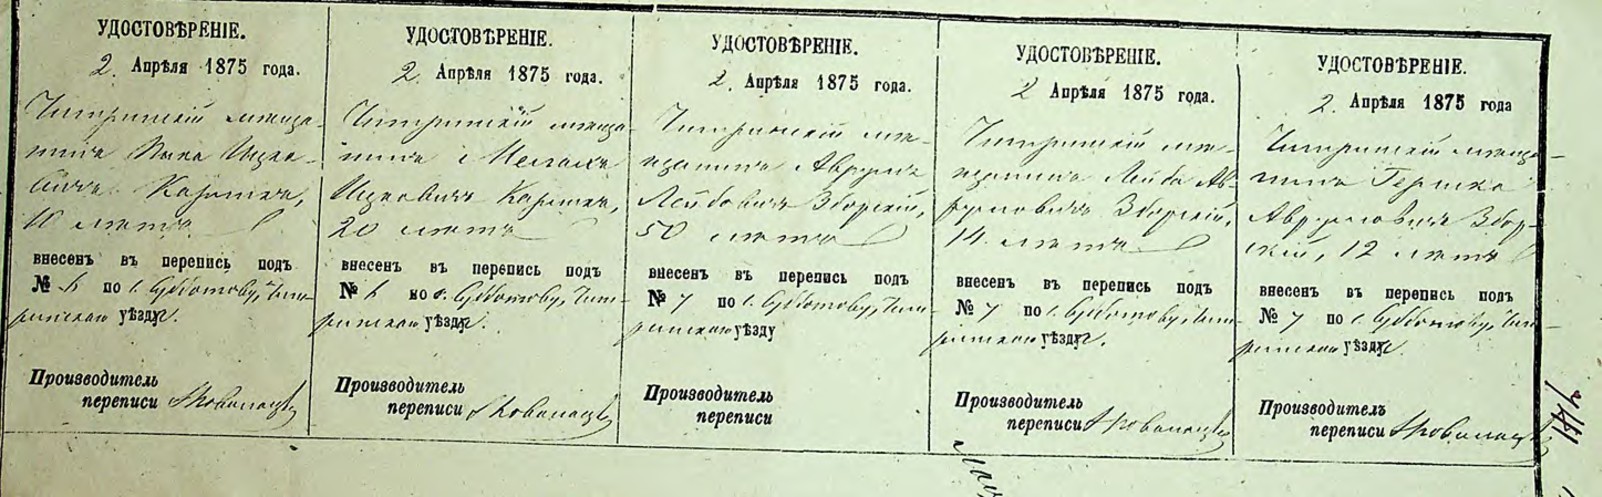 УДОСТОВѢРЕНІЕ.
2. Апрѣля 1875 года.
Чигиринскій мѣща-
нинъ Ицко-
вичъ
10 лѣтъ
внесенъ въ перепись подъ
№ 6 по с. Субботову, Чиги-
ринскаго уѣзда.
Производитель
переписи
УДОСТОВѢРЕНІЕ.
2. Апрѣля 1875 года.
Чигиринскій мѣща-
нинъ
Ицковичъ
20 лѣтъ
внесенъ въ перепись подъ
№ 6 по с. Субботову, Чиги-
ринскаго уѣзда.
Производитель
переписи
УДОСТОВѢРЕНІЕ.
2. Апрѣля 1875 года.
Чигиринскій мѣ-
щанинъ Аврумъ
Лейбовичъ Зборскій,
50 лѣтъ
внесенъ въ перепись подъ
№ 7 по с. Субботову, Чиги-
ринскаго уѣзду
Производитель
переписи
УДОСТОВѢРЕНІЕ.
2 Апрѣля 1875 года.
Чигиринскій мѣ-
щанинъ Лейба Ав-
румовичъ Зборскій,
14 лѣтъ
внесенъ въ перепись подъ
№ 7 по с. Субботову, Чиги-
ринскаго уѣзда.
Производитель
переписи
УДОСТОВѢРЕНІЕ.
2. Апрѣля 1875 года
Чигиринскій мѣща-
нинъ Гершко
Аврумовичъ Збор-
скій, 12 лѣтъ
внесенъ въ перепись подъ
№ 7 по с. Субботову, Чиги-
ринскаго уѣзда.
Производитель
переписи